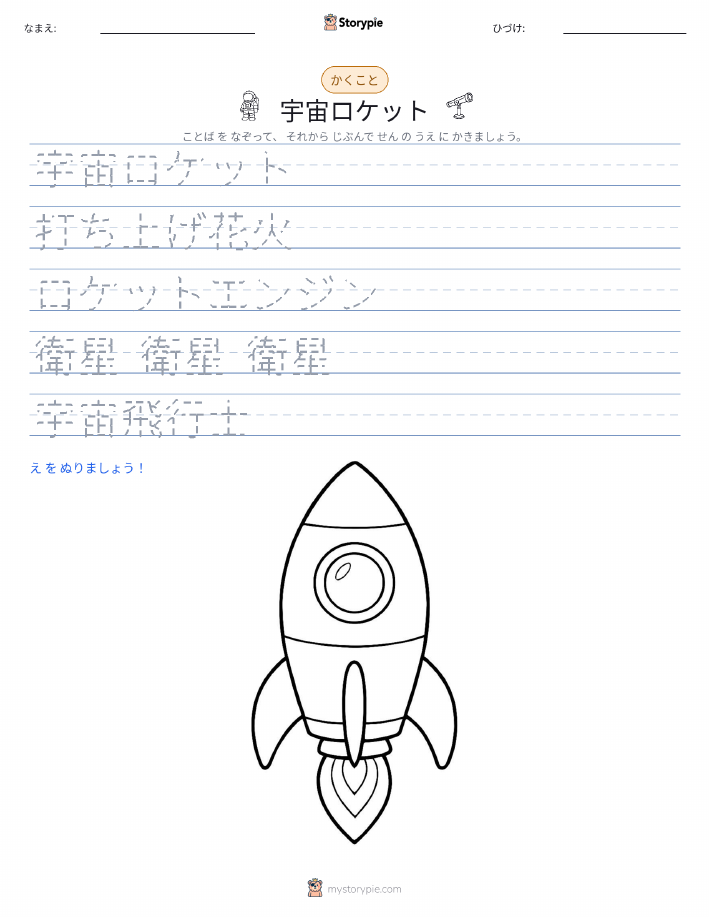 なまえ:
Storypie
ひづけ:
かくこと
宇宙ロケット
ことば を なぞって、 それから じぶんで せん の うえ に かきましょう。
宇宙ロケット
打ち上げ花火
ロケットエンジン
衛星 衛星 衛星
宇宙飛行士
え を ぬりましょう！
mystorypie.com